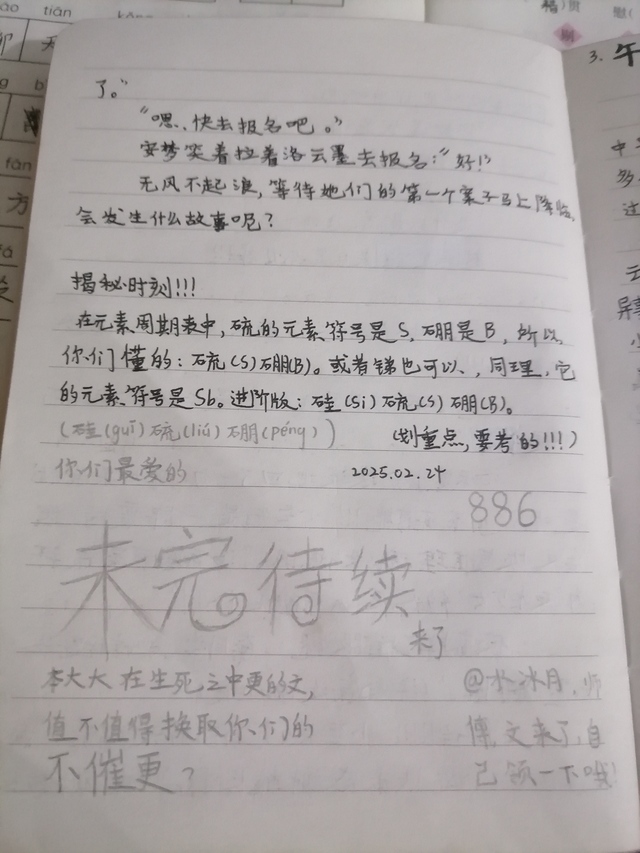 了。”
“嗯、快去报名吧。”
安梦笑着拉着洛云墨去报名：“好！”
无风不起浪，等待她们的第一个案子马上降临，
会发生什么故事呢？
揭秘时刻!!!
在元素周期表中，硫的元素符号是S，硼是B，所以，
你们懂的：硫(S)硼(B)。或者锑也可以、，同理，它
的元素符号是Sb。进阶版：硅(Si)硫(S)硼(B)。
(硅(guī)硫(liú)硼(péng))
(划重点，要考的!!!)
你们最爱的
2025.02.24
886
未完待续
来了
本大大在生死之中更的文，
值不值得换取你们的
不催更？
@水冰月，师
傅，文来了，自
己领一下哦!
3. 午
中
多
过
云
异
tiān
方